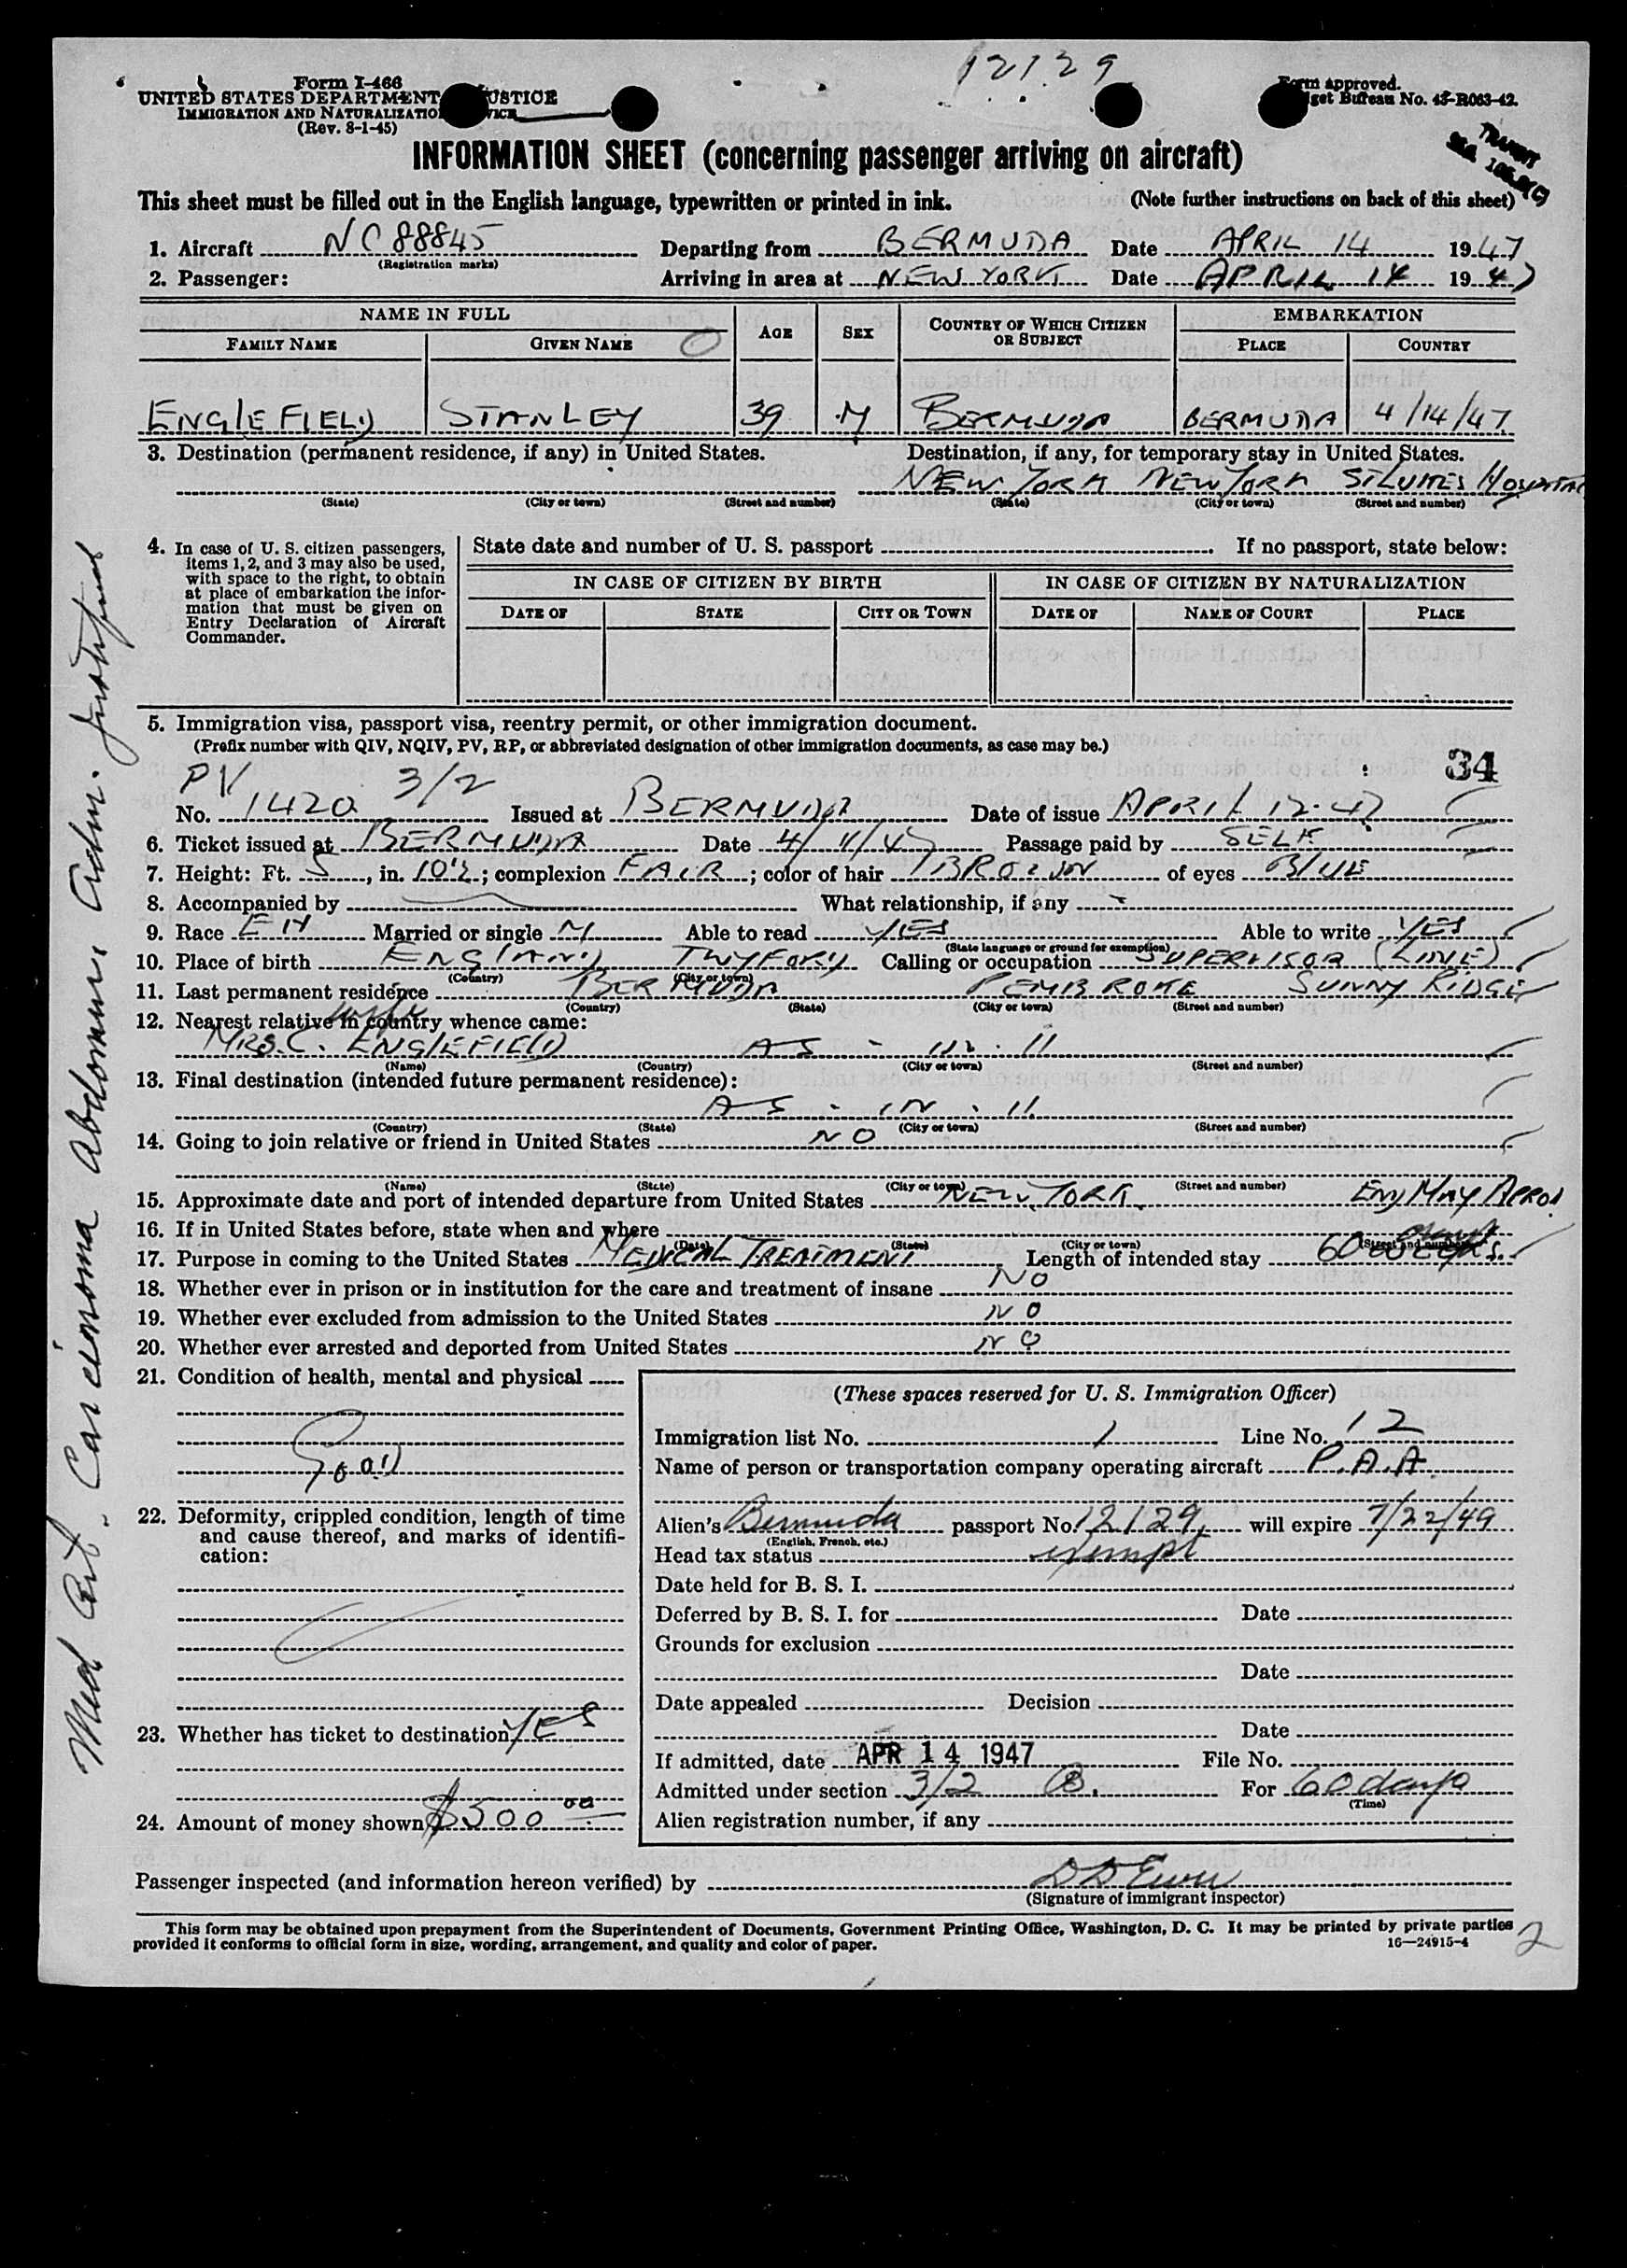 12129
Form I-466
UNITED STATES DEPARTMENT JUSTICE
IMMIGRATION AND NATURALIZATION
(Rev. 8-1-45)
Form approved.
Budget Bureau No. 43-R063-42.
TRANSIT
INFORMATION SHEET (concerning passenger arriving on aircraft)
This sheet must be filled out in the English language, typewritten or printed in ink. (Note further instructions on back of this sheet)
1. Aircraft NC 88845 Departing from BERMUDA Date APRIL 14 1947
(Registration marks)
2. Passenger: Arriving in area at NEW YORK Date APRIL 14 1947
NAME IN FULL AGE SEX COUNTRY OF WHICH CITIZEN OR SUBJECT EMBARKATION
FAMILY NAME GIVEN NAME PLACE COUNTRY
ENGLEFIELD STANLEY 39 M BERMUDA BERMUDA 4/14/47
3. Destination (permanent residence, if any) in United States. Destination, if any, for temporary stay in United States.
NEW YORK NEW YORK ST LUKES HOSPITAL
(State) (City or town) (Street and number) (State) (City or town) (Street and number)
4. In case of U. S. citizen passengers, items 1, 2, and 3 may also be used, with space to the right, to obtain at place of embarkation the information that must be given on Entry Declaration of Aircraft Commander.
State date and number of U. S. passport If no passport, state below:
IN CASE OF CITIZEN BY BIRTH IN CASE OF CITIZEN BY NATURALIZATION
DATE OF STATE CITY OR TOWN DATE OF NAME OF COURT PLACE
5. Immigration visa, passport visa, reentry permit, or other immigration document.
(Prefix number with QIV, NQIV, PV, RP, or abbreviated designation of other immigration documents, as case may be.)
34
PV 3/2
No. 1420 Issued at BERMUDA Date of issue APRIL 12.47
6. Ticket issued at BERMUDA Date 4/11/47 Passage paid by SELF
7. Height: Ft. 5, in. 10½; complexion FAIR; color of hair BROWN of eyes BLUE
8. Accompanied by What relationship, if any
9. Race EN Married or single M Able to read YES Able to write YES
(State language or ground for exemption)
10. Place of birth ENGLAND TWYFORD Calling or occupation SUPERVISOR (LINE)
(Country) (City or town)
11. Last permanent residence BERMUDA PEMBROKE SUNNY RIDGE
(Country) (State) (City or town) (Street and number)
12. Nearest relative in country whence came:
wife
MRS. C. ENGLEFIELD AS - IN. 11
(Name) (Country) (City or town) (Street and number)
13. Final destination (intended future permanent residence):
AS - IN - 11
(Country) (State) (City or town) (Street and number)
14. Going to join relative or friend in United States NO
(Name) (State) (City or town) (Street and number)
15. Approximate date and port of intended departure from United States NEW YORK END MAY APROX
16. If in United States before, state when and where
(Date) (State) (City or town) (Street and number)
17. Purpose in coming to the United States MEDICAL TREATMENT Length of intended stay 60 days
18. Whether ever in prison or in institution for the care and treatment of insane NO
19. Whether ever excluded from admission to the United States NO
20. Whether ever arrested and deported from United States NO
21. Condition of health, mental and physical
GOOD
22. Deformity, crippled condition, length of time and cause thereof, and marks of identification:
23. Whether has ticket to destination YES
24. Amount of money shown $500 00
(These spaces reserved for U. S. Immigration Officer)
Immigration list No. 1 Line No. 12
Name of person or transportation company operating aircraft P.A.A.
Alien's Bermuda passport No. 12129 will expire 7/22/49
(English, French, etc.)
Head tax status exempt
Date held for B. S. I.
Deferred by B. S. I. for Date
Grounds for exclusion
Date
Date appealed Decision
Date
If admitted, date APR 14 1947 File No.
Admitted under section 3/2 B. For 60 days
(Time)
Alien registration number, if any
Passenger inspected (and information hereon verified) by
(Signature of immigrant inspector)
This form may be obtained upon prepayment from the Superintendent of Documents, Government Printing Office, Washington, D. C. It may be printed by private parties
provided it conforms to official form in size, wording, arrangement, and quality and color of paper. 16—24915-4
2
Med Cert. Carcinoma Abdomen. Adm. justified